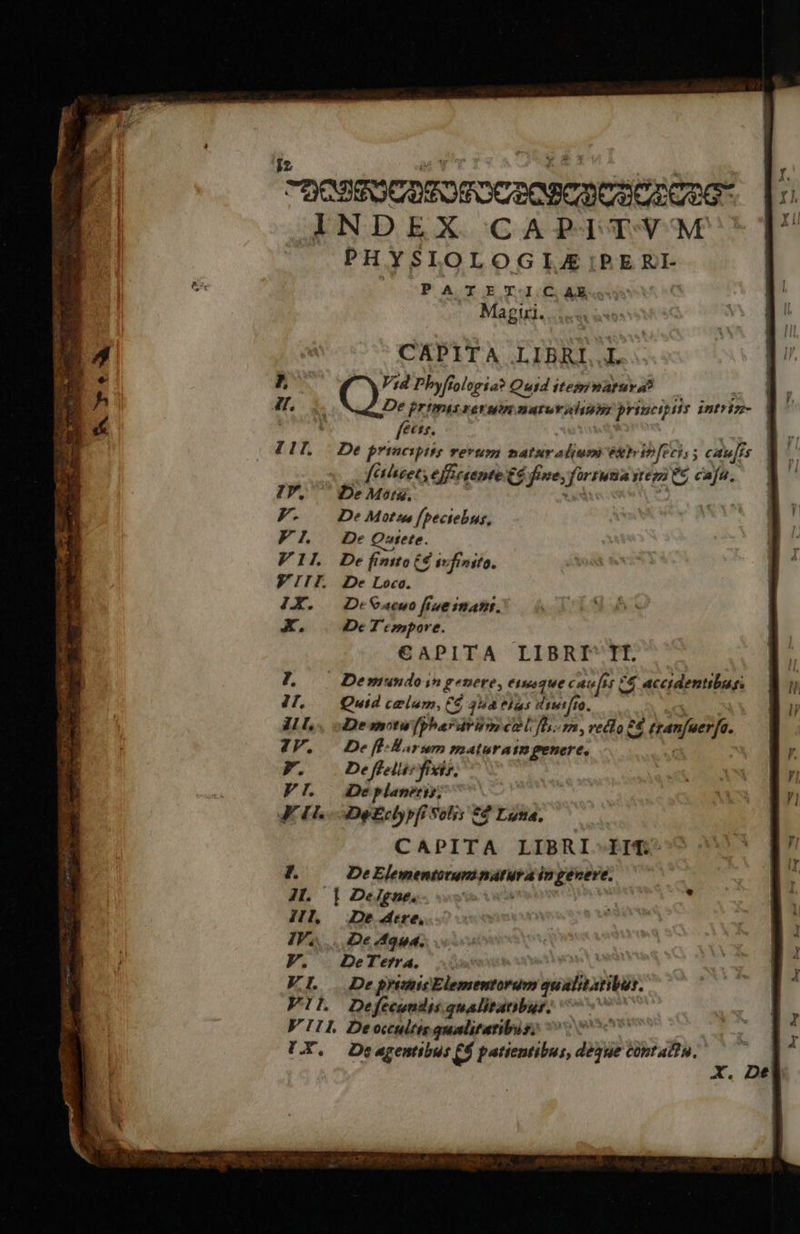 INDEX CAPITVM
PHYSIOLOGIÆ PERI-
PATETICAE
Magiri.
CAPITA LIBRI I.
I. QVid Physiologia? Quid item natura?
II. De primis rerum naturalium principiis intrin-
secis.
III. De principiis rerum naturalium extrinsecis; causis
scilicet, efficiente & fine, fortuna item & casu.
IV. De Motu.
V. De Motus speciebus.
VI. De Quiete.
VII. De finito & infinito.
VIII. De Loco.
IX. De vacuo siue inani.
X. De Tempore.
CAPITA LIBRI II.
I. De mundo in genere, eiusque causis & accidentibus.
II. Quid cælum, & quæ eius diuisio.
III. De motu sphærarum cœlestium, recto & transuerso.
IV. De stellarum natura in genere.
V. De stellis fixis.
VI. De planetis.
VII. De Eclypsi Solis & Lunæ.
CAPITA LIBRI III.
I. De Elementorum natura in genere.
II. De Igne.
III. De Aere.
IV. De Aqua.
V. De Terra.
VI. De primis Elementorum qualitatibus.
VII. De secundis qualitatibus.
VIII. De occultis qualitatibus.
IX. De agentibus & patientibus, deque contactu.
X. De